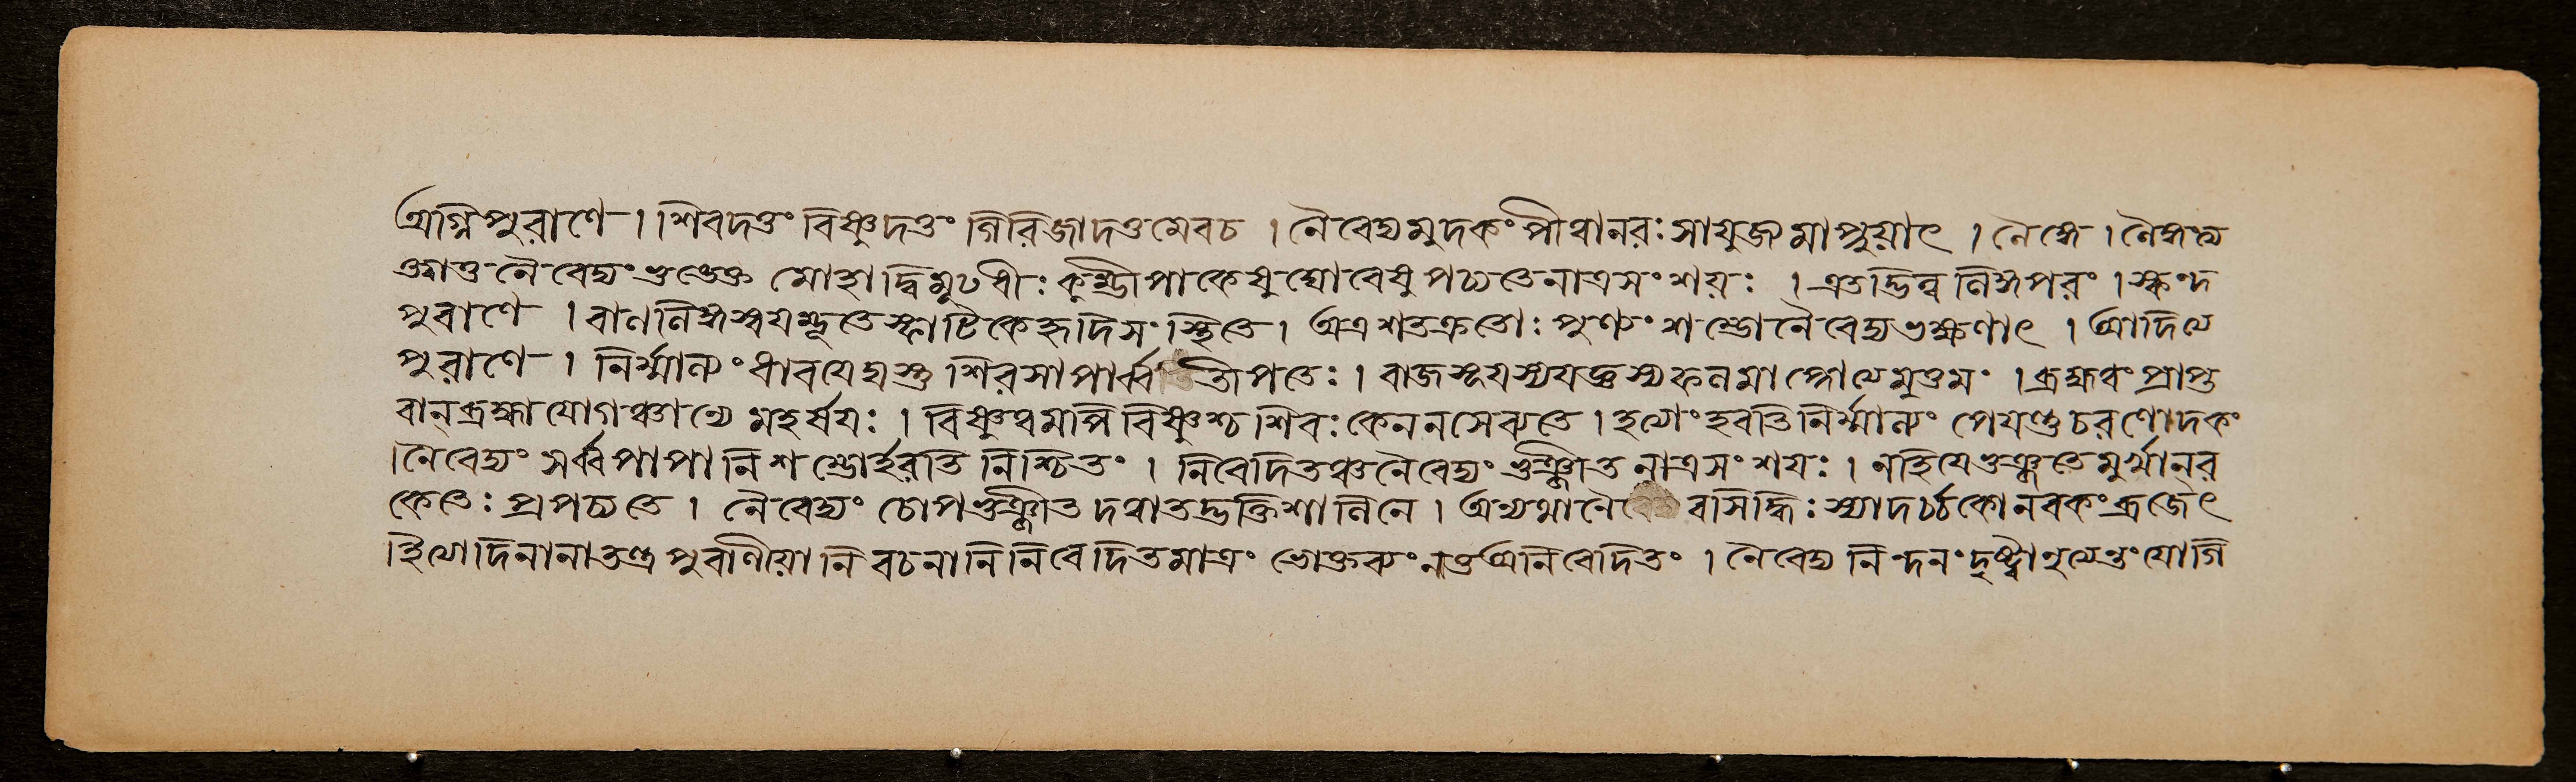 অগ্নিপুরাণে । শিবদত্তং বিষ্ণুদত্তং গিরিজাদত্তমেবচ । নৈবেদ্যমুদকংপীত্বানরঃসাযুজ্যমাপ্নুয়াৎ । লৈঙ্গে ।
নৈবেদ্যং মোহাদ্বিমুঢধীঃকুম্ভীপাকেষুঘোরেষুপচ্যতেনাত্রসংশয়ঃ । এতদ্ভিন্নলিঙ্গপরং । স্কন্দ
পুরাণে । বাণলিঙ্গেস্বযম্ভূতেস্ফাটিকেহৃদিসংস্থিতে । অত্রশতক্রতোঃপুণ্যংশম্ভোর্নৈবেদ্যভক্ষণাৎ । আদিত্য
পুরাণে । নির্ম্মাল্যংধারযেদ্যস্তুশিরসাপার্ব্বতীপতেঃ । রাজসূযস্যযজ্ঞস্যফলমাপ্নোত্যনুত্তমং । ব্রহ্মত্বংপ্রাপ্ত
বান্ব্রহ্মাযোগঞ্চান্যেমহর্ষযঃ । বিষ্ণুত্বমাপবিষ্ণুশ্চশিবঃকেনন সেব্যতে । হত্যাংহরতিনির্ম্মাল্যং পেযন্তুচরণোদকং
। নৈবেদ্যং সর্ব্বপাপানিশম্ভোর্হরতি নিশ্চিতং । নিবেদিতঞ্চনৈবেদ্যং ভুঞ্জীতনাত্রসংশযঃ । নহিযেভুঞ্জতেমুর্খানর
কেতেঃপ্রপচ্যতে । নৈবেদ্যং চোপভুঞ্জীতদত্বাতদ্ভক্তিশালিনে । অন্যথানৈ বসিদ্ধিঃস্যাদর্চ্চকোনরকংব্রজেৎ
। ইত্যাদিনানাতন্ত্রপুরাণীয়ানিবচনানিনিবেদিতমাত্রং ভোক্তব্যংনতুঅনিবেদিতং । নৈবেদ্যনিন্দনংদৃষ্ট্বানৃত্যন্তংযোগি